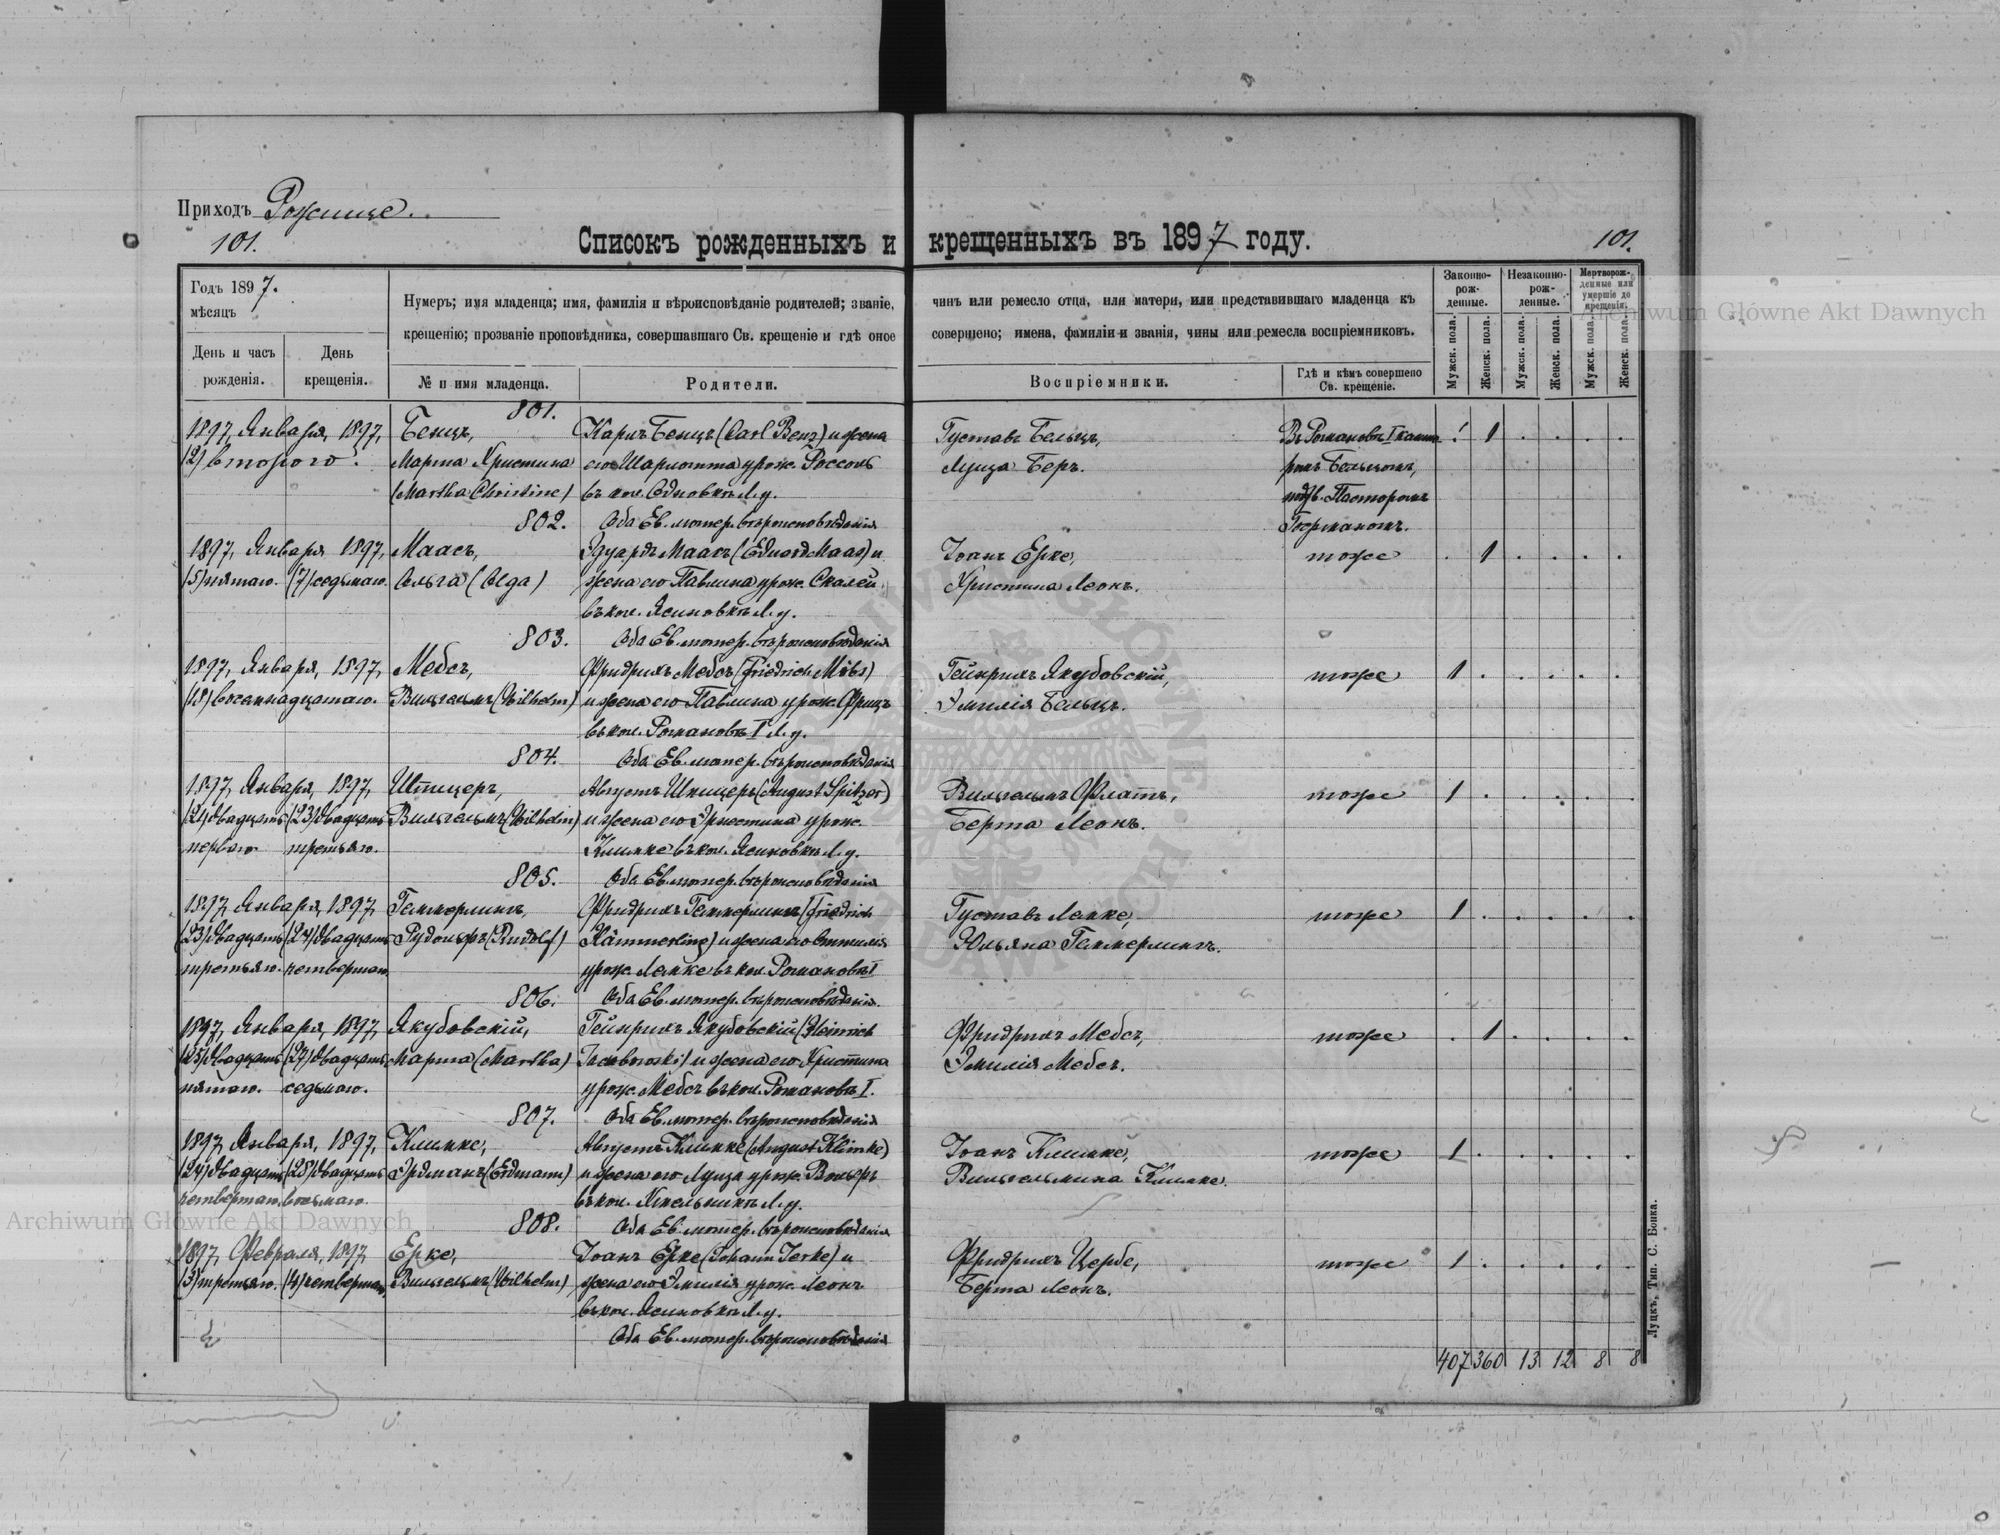 Приходъ Рожище.
101.
Списокъ рожденныхъ и крещенныхъ въ 1897 году.
101.
Годъ 1897.
мѣсяцъ
День и часъ рожденія.
День крещенія.
Нумеръ; имя младенца; имя, фамилія и вѣроисповѣданіе родителей; званіе, чинъ или ремесло отца, или матери, или представившаго младенца къ
крещенію; прозваніе проповѣдника, совершавшаго Св. крещеніе и гдѣ оное совершено; имена, фамиліи и званія, чины или ремесла воспріемниковъ.
№ и имя младенца.
Родители.
Воспріемники.
Гдѣ и кѣмъ совершено Св. крещеніе.
Законно-рож-денные.
Незаконно-рож-денные.
Мертворож-денные или умершіе до крещенія.
Мужск. пола.
Женск. пола.
Мужск. пола.
Женск. пола.
Мужск. пола.
Женск. пола.
801.
1897, Января, 1897, Бенцъ, Карлъ Бенцъ (Carl Benz) и жена Густавъ Бельцъ, Въ Романовкѣ I 1
(2) второго. Марта Христина его Шарлотта урож. Луиза Беръ. Бельцомъ,
(Martha Christine) въ кол. Л. у. подтв. Пасторомъ
802. Оба Ев. лютер. вѣроисповѣданія
1897, Января 1897, Маасъ, Эдуардъ Маасъ (Eduard Maas) и Іоанъ Ерке, тоже 1
(5) пятаго. (7) седьмаго. Ольга (Olga) жена его Павлина урож. Христина Леонъ.
въ кол. Ясиновкѣ Л. у.
803. Оба Ев. лютер. вѣроисповѣданія
1897, Января, 1897, Мебсъ, Фридрихъ Мебсъ (Friedrich Mäbs) Гейнрихъ Якубовскій, тоже 1
(18) восемнадцатаго. Вильгельмъ (Wilhelm) и жена его Павлина урож. Фрицъ Эмилія Бельцъ.
въ кол. Романовкѣ I Л. у.
804. Оба Ев. лютер. вѣроисповѣданія
1897, Января, 1897, Шпицеръ, Августъ Шпицеръ (August Spitzer) Вильгельмъ Флатъ, тоже 1
(21) двадцать (23) двадцать Вильгельмъ (Wilhelm) и жена его Эрнестина урож. Берта Леонъ.
перваго третьяго. Климке въ кол. Ясиновкѣ Л. у.
805. Оба Ев. лютер. вѣроисповѣданія
1897, Января, 1897, Геммерлингъ, Фридрихъ Геммерлингъ (Friedrich Густавъ Лемке, тоже 1
(23) двадцать (24) двадцать Рудольфъ (Rudolf) Hämmerling) и жена его Оттилія Юльяна Геммерлингъ.
третьяго. четвертаго урож. Лемке въ кол. Романовкѣ I
806. Оба Ев. лютер. вѣроисповѣданія.
1897, Января, 1897, Якубовскій, Гейнрихъ Якубовскій (Heinrich Фридрихъ Мебсъ, тоже 1
(25) двадцать (27) двадцать Марта (Martha) Jackubowski) и жена его Христина Эмилія Мебсъ.
пятаго. седьмаго. урож. Мебсъ въ кол. Романовкѣ I.
807. Оба Ев. лютер. вѣроисповѣданія
1897, Января, 1897, Климке, Августъ Климке (August Klimke) Іоанъ Климке, тоже 1
(24) двадцать (28) двадцать Эрдманъ (Erdmann) и жена его Луиза урож. Вильгельмина Климке.
четвертаго. восьмаго. въ кол. Л. у.
808. Оба Ев. лютер. вѣроисповѣданія
1897, Февраля, 1897 Ерке, Іоанъ Ерке (Johann Jerke) и Фридрихъ Цербе, тоже 1
(3) третьяго. (4) четвертаго. Вильгельмъ (Wilhelm) жена его Эмилія урож. Леонъ Берта Леонъ.
въ кол. Ясиновкѣ Л. у.
Оба Ев. лютер. вѣроисповѣданія
407 360 13 12 8 8
Луцкъ, Тип. С. Бонка.
Archiwum Główne Akt Dawnych
Archiwum Główne Akt Dawnych